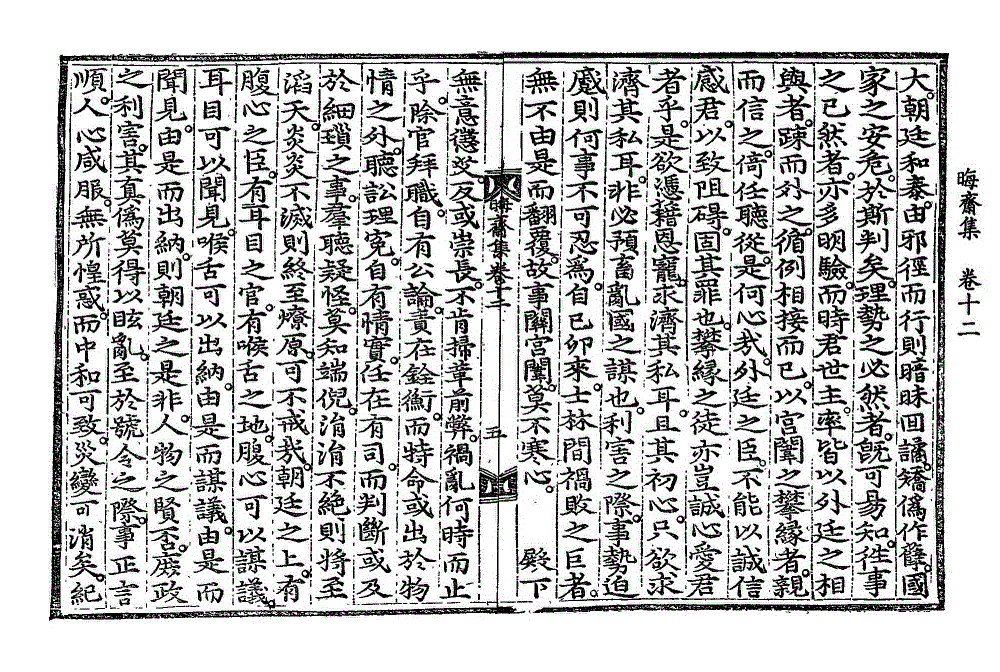 晦齋集 卷十二
大。朝廷和泰。由邪徑而行則暗昧回譎。矯僞作孼。國
家之安危。於斯判矣。理勢之必然者。旣可易知。往事
之已然者。亦多明驗。而時君世主。率皆以外廷之相
與者。踈而外之。循例相接而已。以宮闈之攀緣者。親
而信之。倚任聽從。是何心哉。外廷之臣。不能以誠信
感君。以致阻碍。固其罪也。攀緣之徒。亦豈誠心愛君
者乎。是欲憑藉恩寵。求濟其私耳。且其初心。只欲求
濟其私耳。非必預畜亂國之謀也。利害之際。事勢迫
蹙。則何事不可忍爲。自己卯來。士林間禍敗之巨者。
無不由是而翻覆。故事關宮闈。莫不寒心。 殿下
晦齋集卷十二
五
無意懲艾。反或崇長。不肯掃革前弊。禍亂何時而止
乎。除官拜職。自有公論。責在銓衡。而特命或出於物
情之外。聽訟理寃。自有情實。任在有司。而判斷或及
於細瑣之事。羣聽疑怪。莫知端倪。涓涓不絶則將至
滔天。炎炎不滅則終至燎原。可不戒哉。朝廷之上。有
腹心之臣。有耳目之官。有喉舌之地。腹心可以謀議。
耳目可以聞見。喉舌可以出納。由是而謀議。由是而
聞見。由是而出納。則朝廷之是非。人物之賢否。庶政
之利害。其眞僞莫得以眩亂。至於號令之際。事正言
順。人心咸服。無所惶惑。而中和可致。災變可消矣。紀